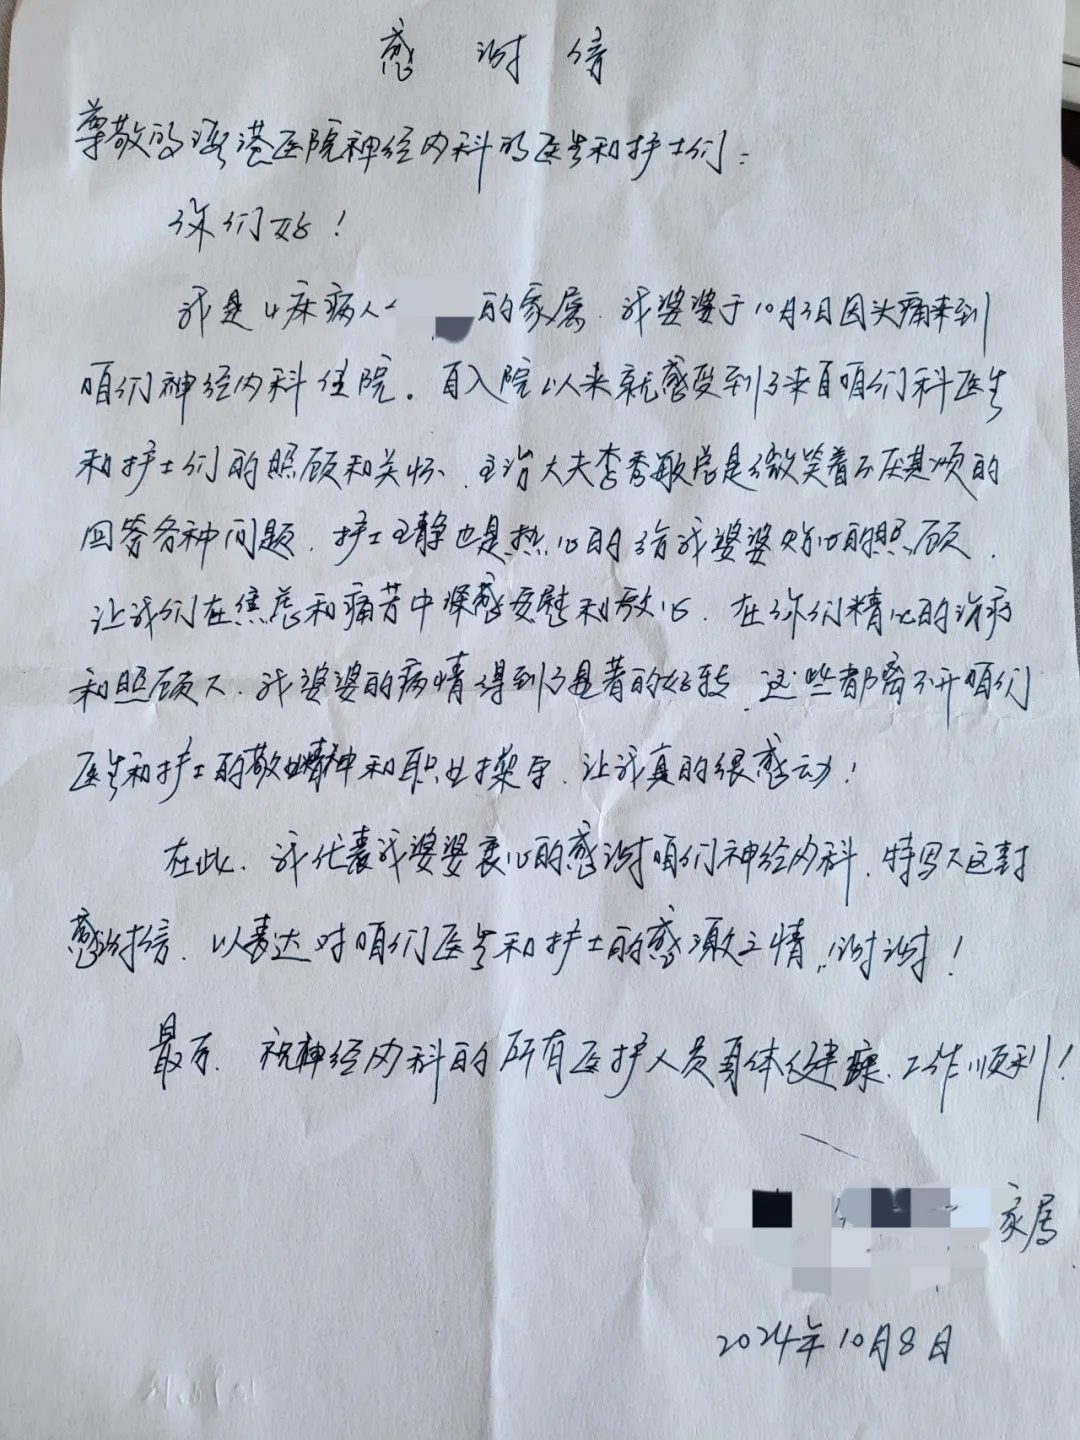 感谢信
尊敬的港医院神经内科的医生和护士们:
你们好!
我是4床病人的家属.我婆婆于10月3日因头痛来到
咱们神经内科住院。自入院以来就感受到了来自咱们科医生
和护士们的照顾和关怀.主治大夫李秀敏总是微笑着不厌其烦的
回答各种问题.护士王静也是热心的给我婆婆贴心的照顾.
让我们在焦虑和痛苦中深感安慰和放心.在你们精心的治疗
和照顾下.我婆婆的病情得到了显著的好转.这些都离不开咱们
医生和护士的敬业精神和职业操守.让我真的很感动!
在此.我代表我婆婆衷心的感谢咱们神经内科.特写下这封
感谢信.以表达对咱们医生和护士的感激之情.谢谢!
最后.祝神经内科的所有医护人员身体健康.工作顺利!
家属
2024年10月8日